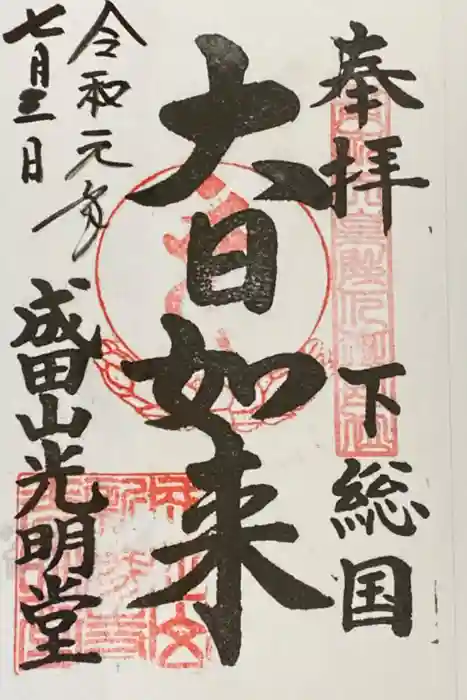 奉拝 下総国
大日如来
成田山光明堂
令和元年
七月三日